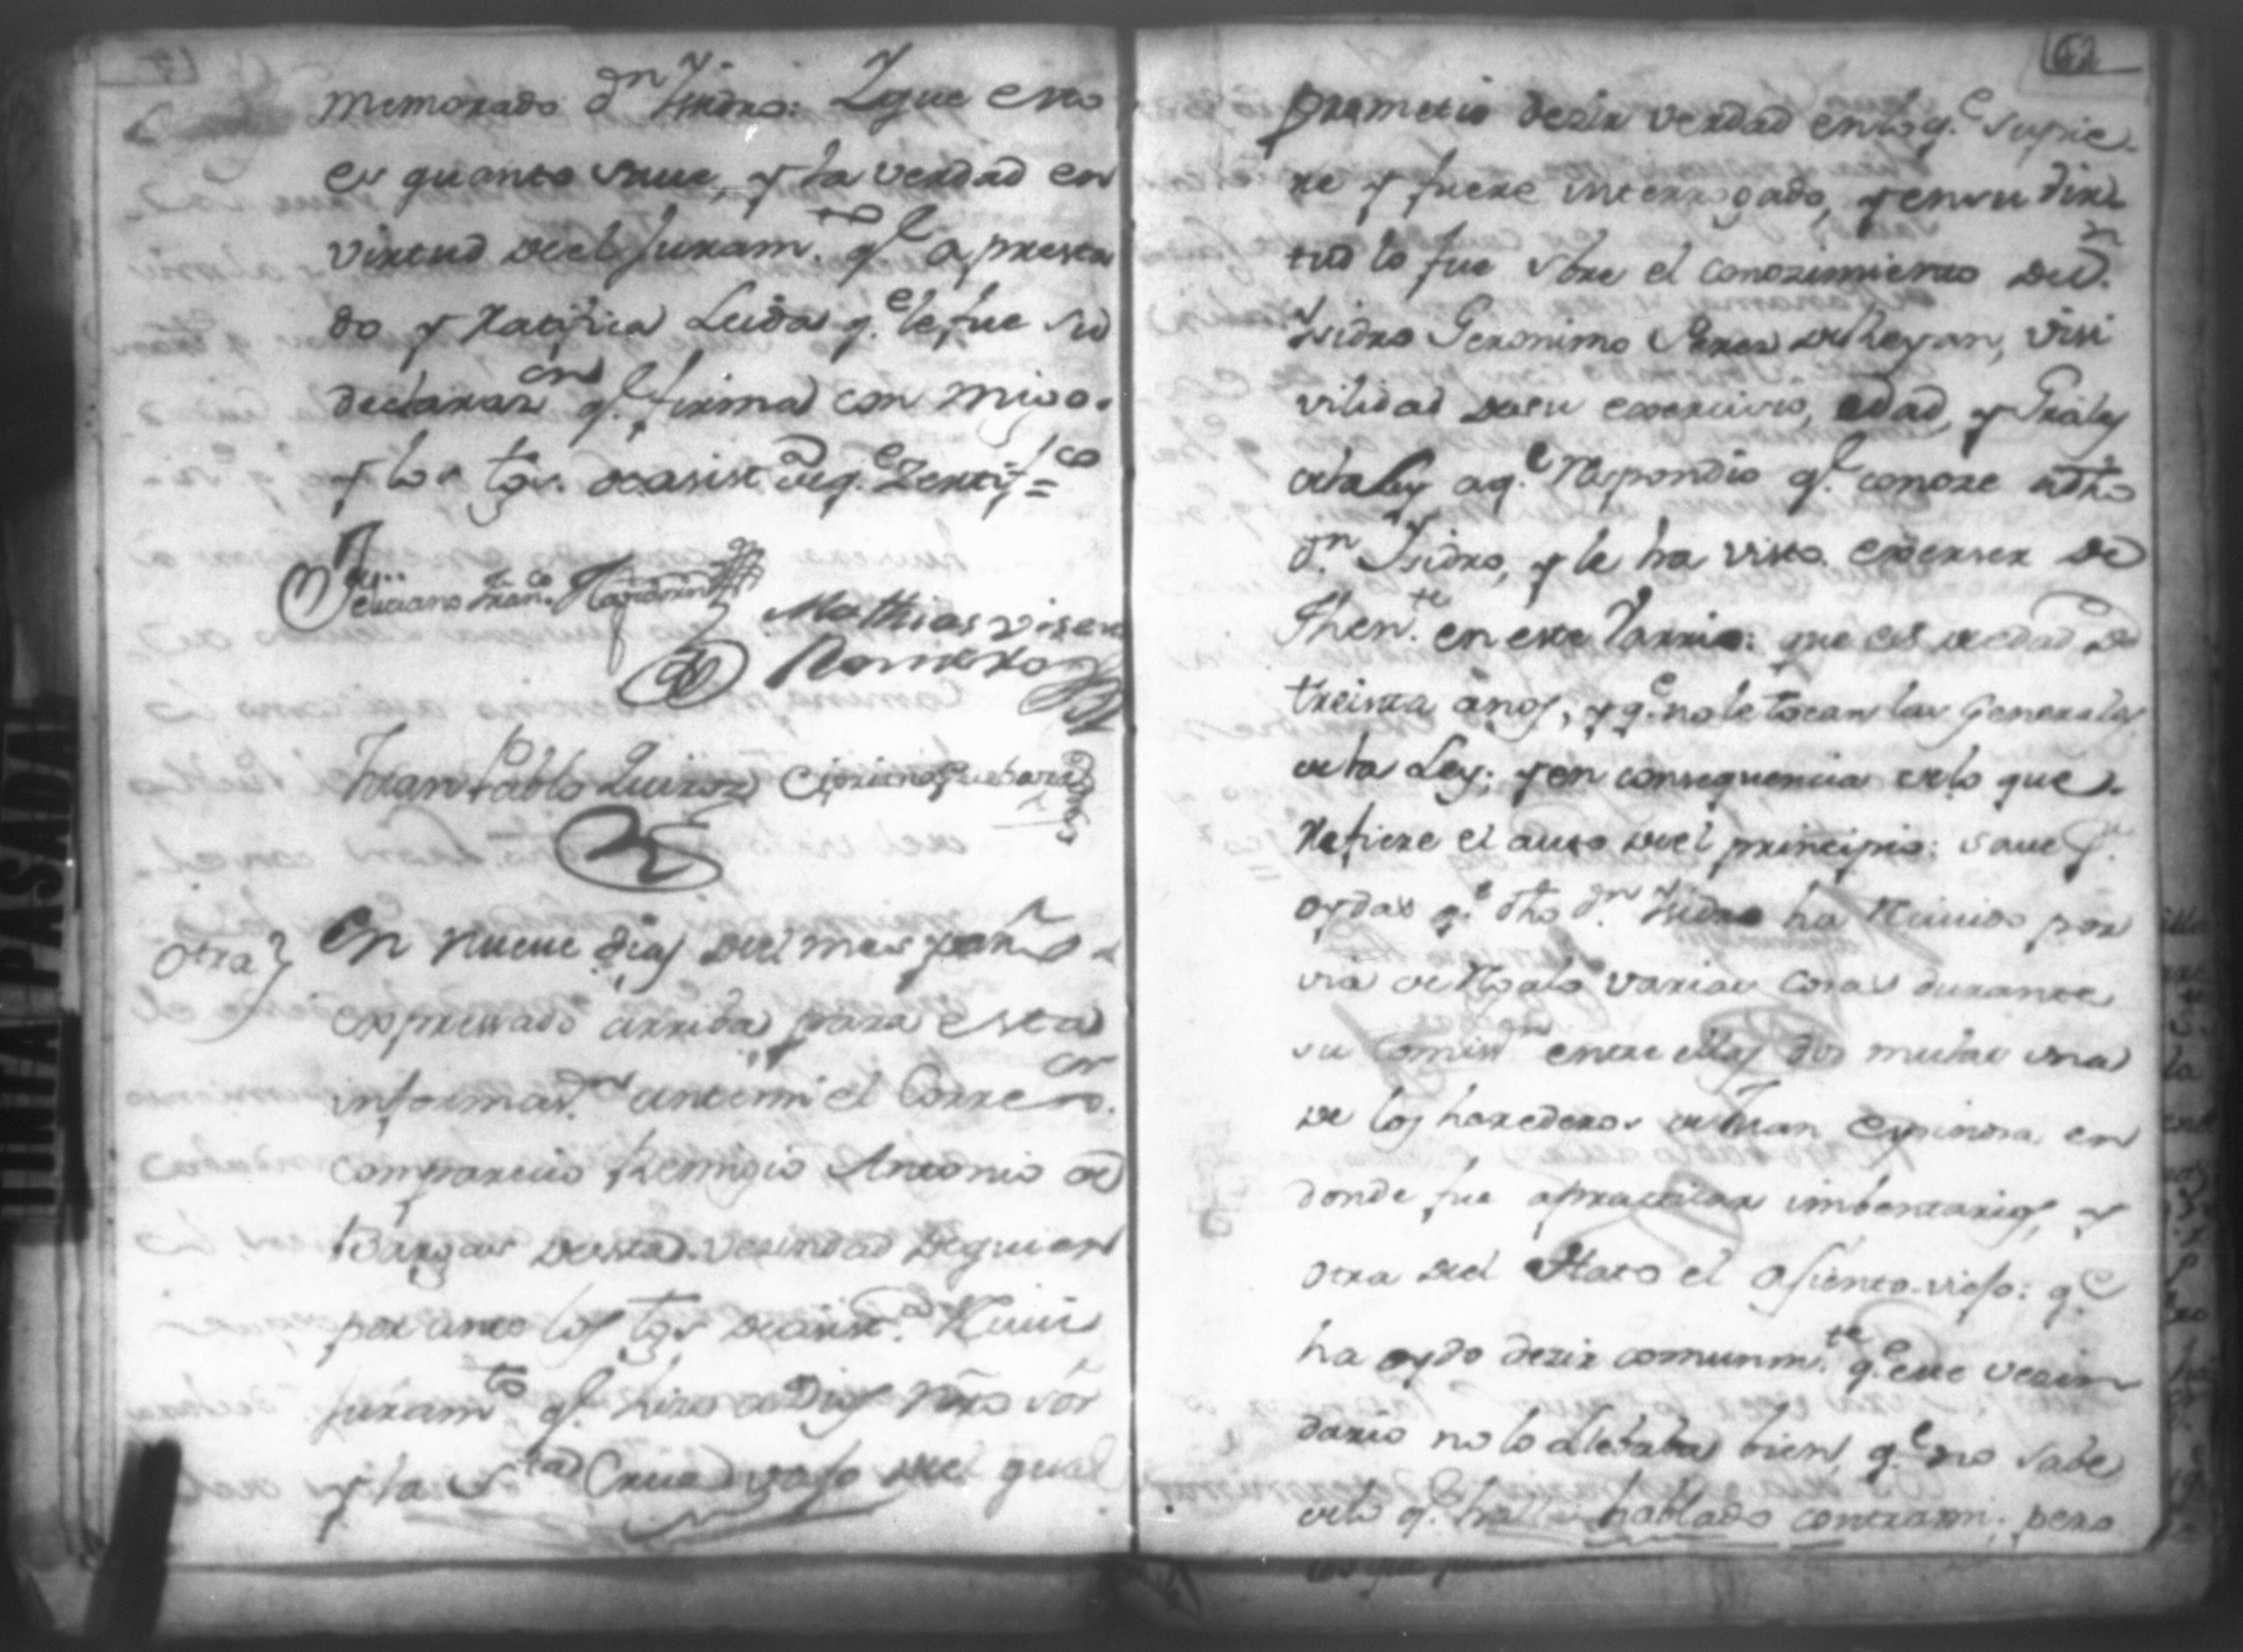 memorado dn Ysidro: Y que esto
es quanto save, y la verdad en
virtud deel Juramto. qe a presta
do y Ratifica Leida qe le fue su
declarazcn qe. firma con migo.
y los tgs. de asista. de qe Zertifco=
Feliciano Franco.
Mathias Visente
Ramires
Juan Pablo Quiroz Cipriano Guebara
Otra
En nueve dias deel mes y año
expressado arriba para esta
informazn. ante mi el Correor.
comparecio Remigio Antonio de
Bargas de esta vesindad de quien
por ante los tgs de asista. Recivi
Juramto qe hizo a Dios nro sor
y la Sta Cruz vajo deel qual
62
prometio dezir verdad en lo q.e supie
re y fuere interrogado, y en su virt
tud lo fue sbre el conozimiento de dn.
Ysidro Geronimo Perez de Theran, visi
vilidad de su exercicio, edad, y Grales
de la ley a q.e Respondio qe. conoze a dho
dn. Ysidro, y le ha visto exerser de
Thente. en este Varrio: que es de edad de
treinta años, y q.e no le tocan las Generales
de la Ley; y en consequencia de lo que
Refiere el auto deel principio: save pr.
oydas q.e dho dn. Ysidro ha Recivido por
via de Regalo varias cosas durante
su Comisn entre ellas dos mulas una
de los herederos de Juan Espinosa en
donde fue a practicar imbentarios, y
otra deel Hato el Asiento viejo: qe
ha oydo dezir comunmte. q.e ese vezin
dario no lo llebaba bien q.e no sabe
de lo q. ha hablado contra mi; pero